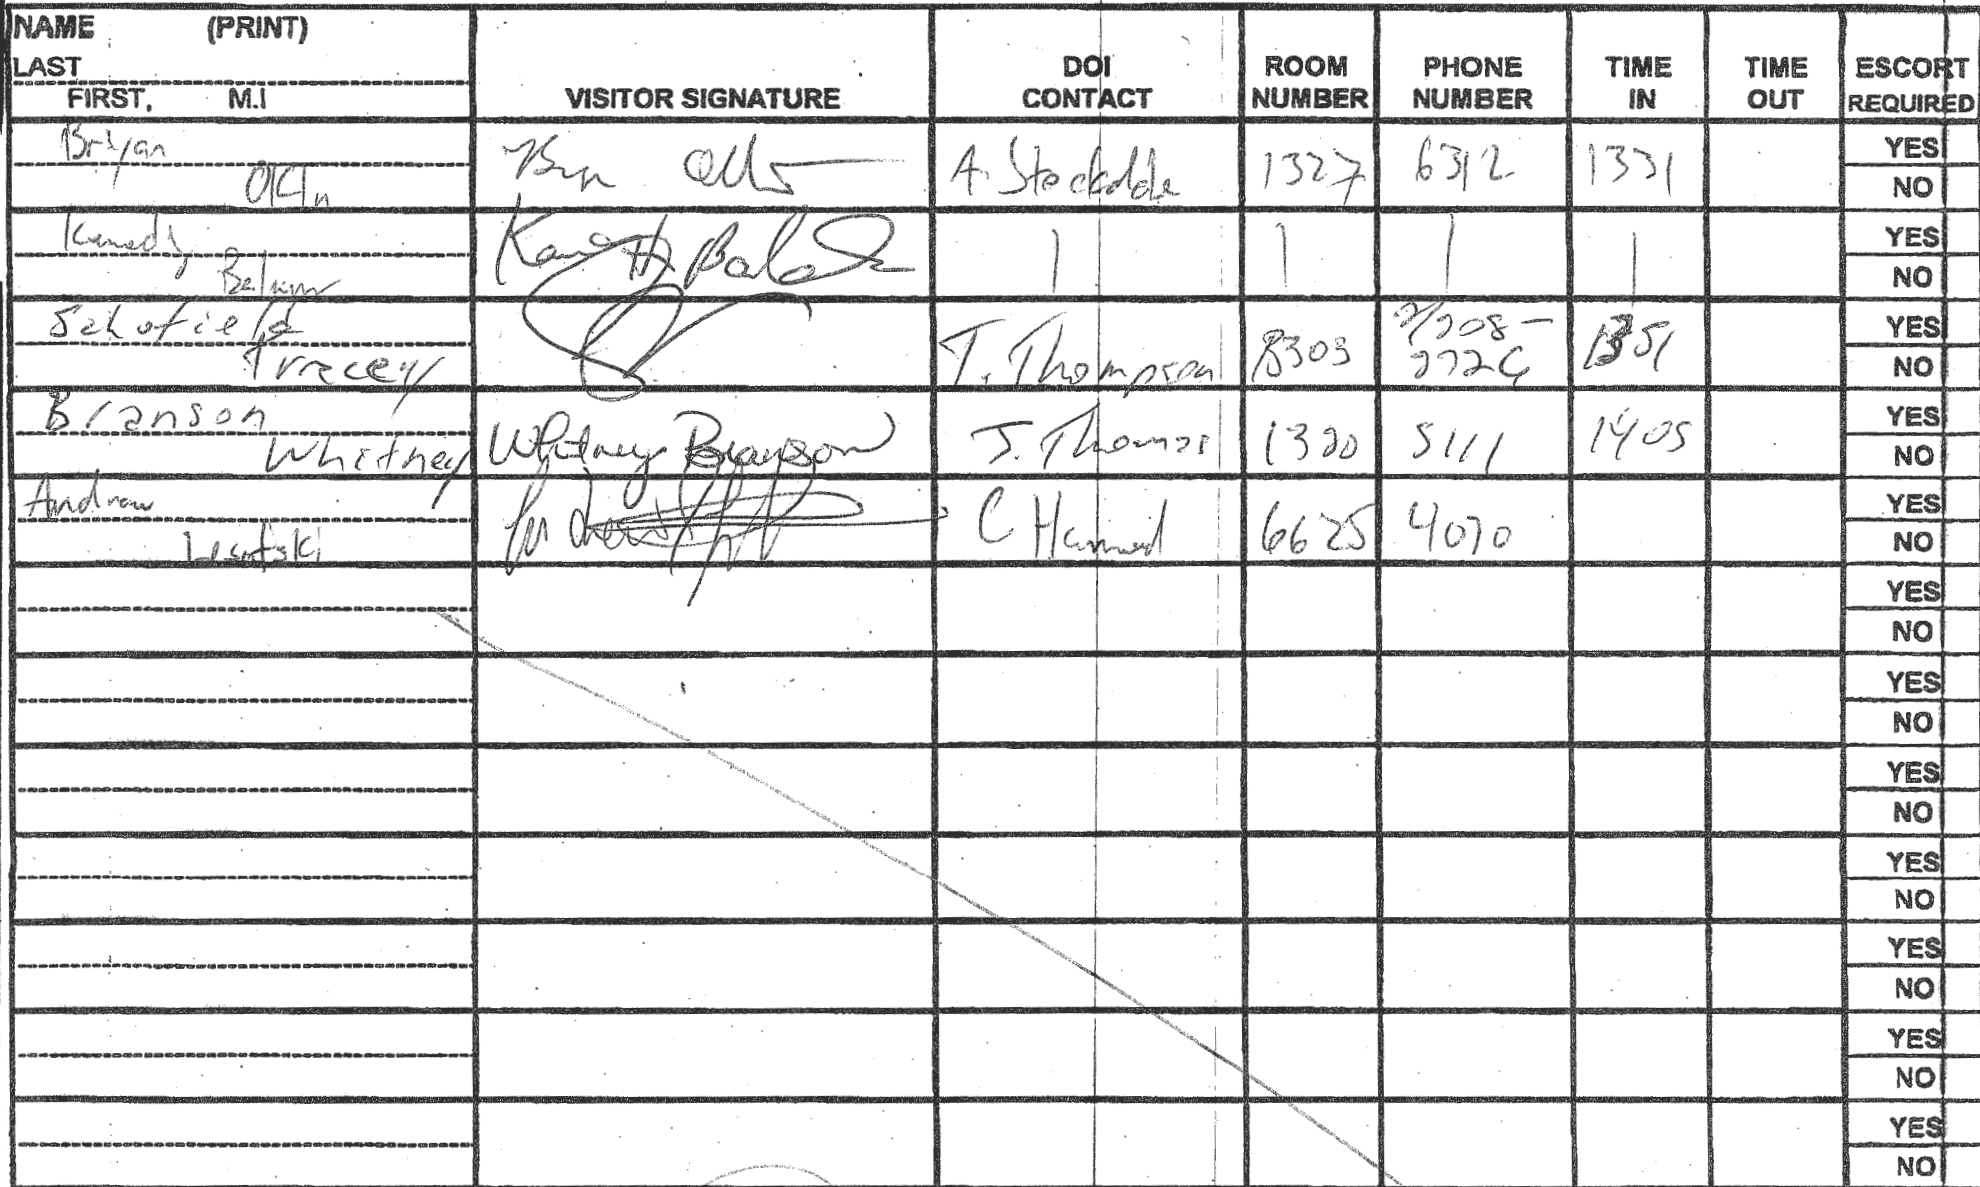 NAME (PRINT)
LAST
FIRST, M.I
VISITOR SIGNATURE
DOI CONTACT
ROOM NUMBER
PHONE NUMBER
TIME IN
TIME OUT
ESCORT REQUIRED
Bryan
A. Stockdale 1327 6312 1331
YES
NO
Kennedy
| | | |
YES
NO
Schofield
Tracey
T. Thompson 1351
YES
NO
Branson
Whitney Whitney Branson J. Thomas 5111 1405
YES
NO
Andrew
C 6625 4070
YES
NO
YES
NO
YES
NO
YES
NO
YES
NO
YES
NO
YES
NO
YES
NO